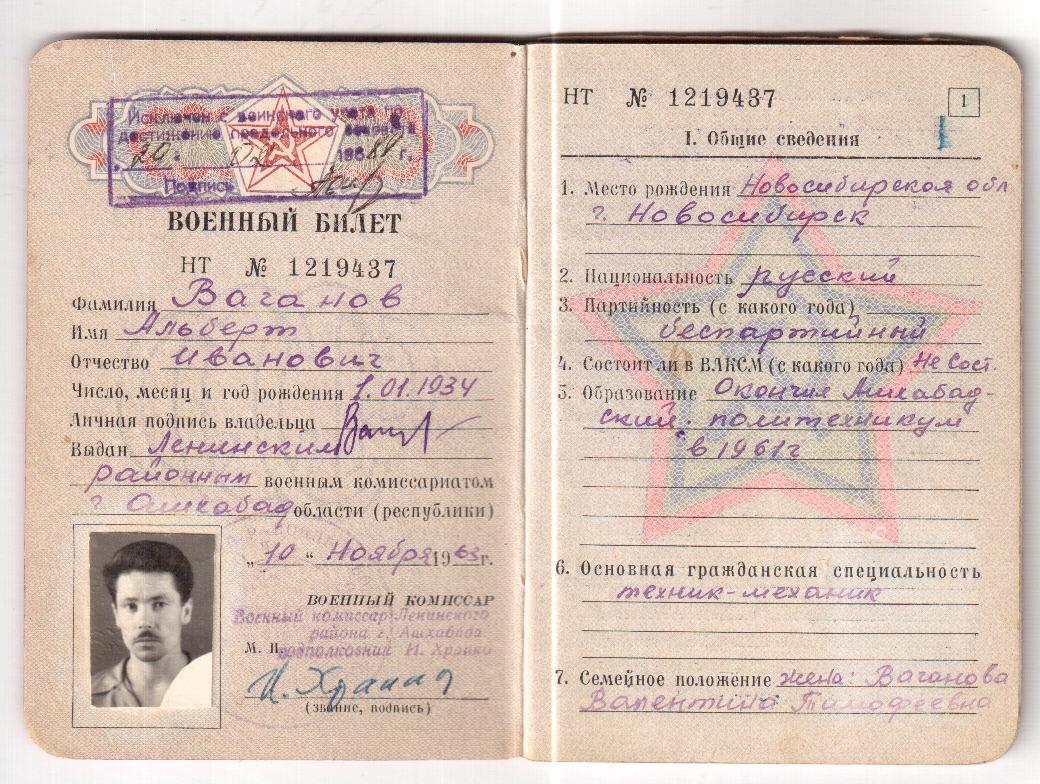 Исключен с воинского учета по
достижению предельного возраста
198 г.
Подпись
ВОЕННЫЙ БИЛЕТ
НТ № 1219437
Фамилия Ваганов
Имя Альберт
Отчество Иванович
Число, месяц и год рождения 1.01.1934
Личная подпись владельца
Выдан Ленинским
районным военным комиссариатом
г Ашхабад области (республики)
„10“ Ноября 1963г.
ВОЕННЫЙ КОМИССАР
Военный комиссар Ленинского
района г. Ашхабада
М. П. подполковник И.
(звание, подпись)
НТ № 1219437
1
I. Общие сведения
1. Место рождения Новосибирская обл
г. Новосибирск
2. Национальность русский
3. Партийность (с какого года)
беспартийный
4. Состоит ли в ВЛКСМ (с какого года) Не сост.
5. Образование Окончил Ашхабад-
ский политехникум
в 1961г
6. Основная гражданская специальность
техник-механик
7. Семейное положение жена: Ваганова
Валентина Тимофеевна